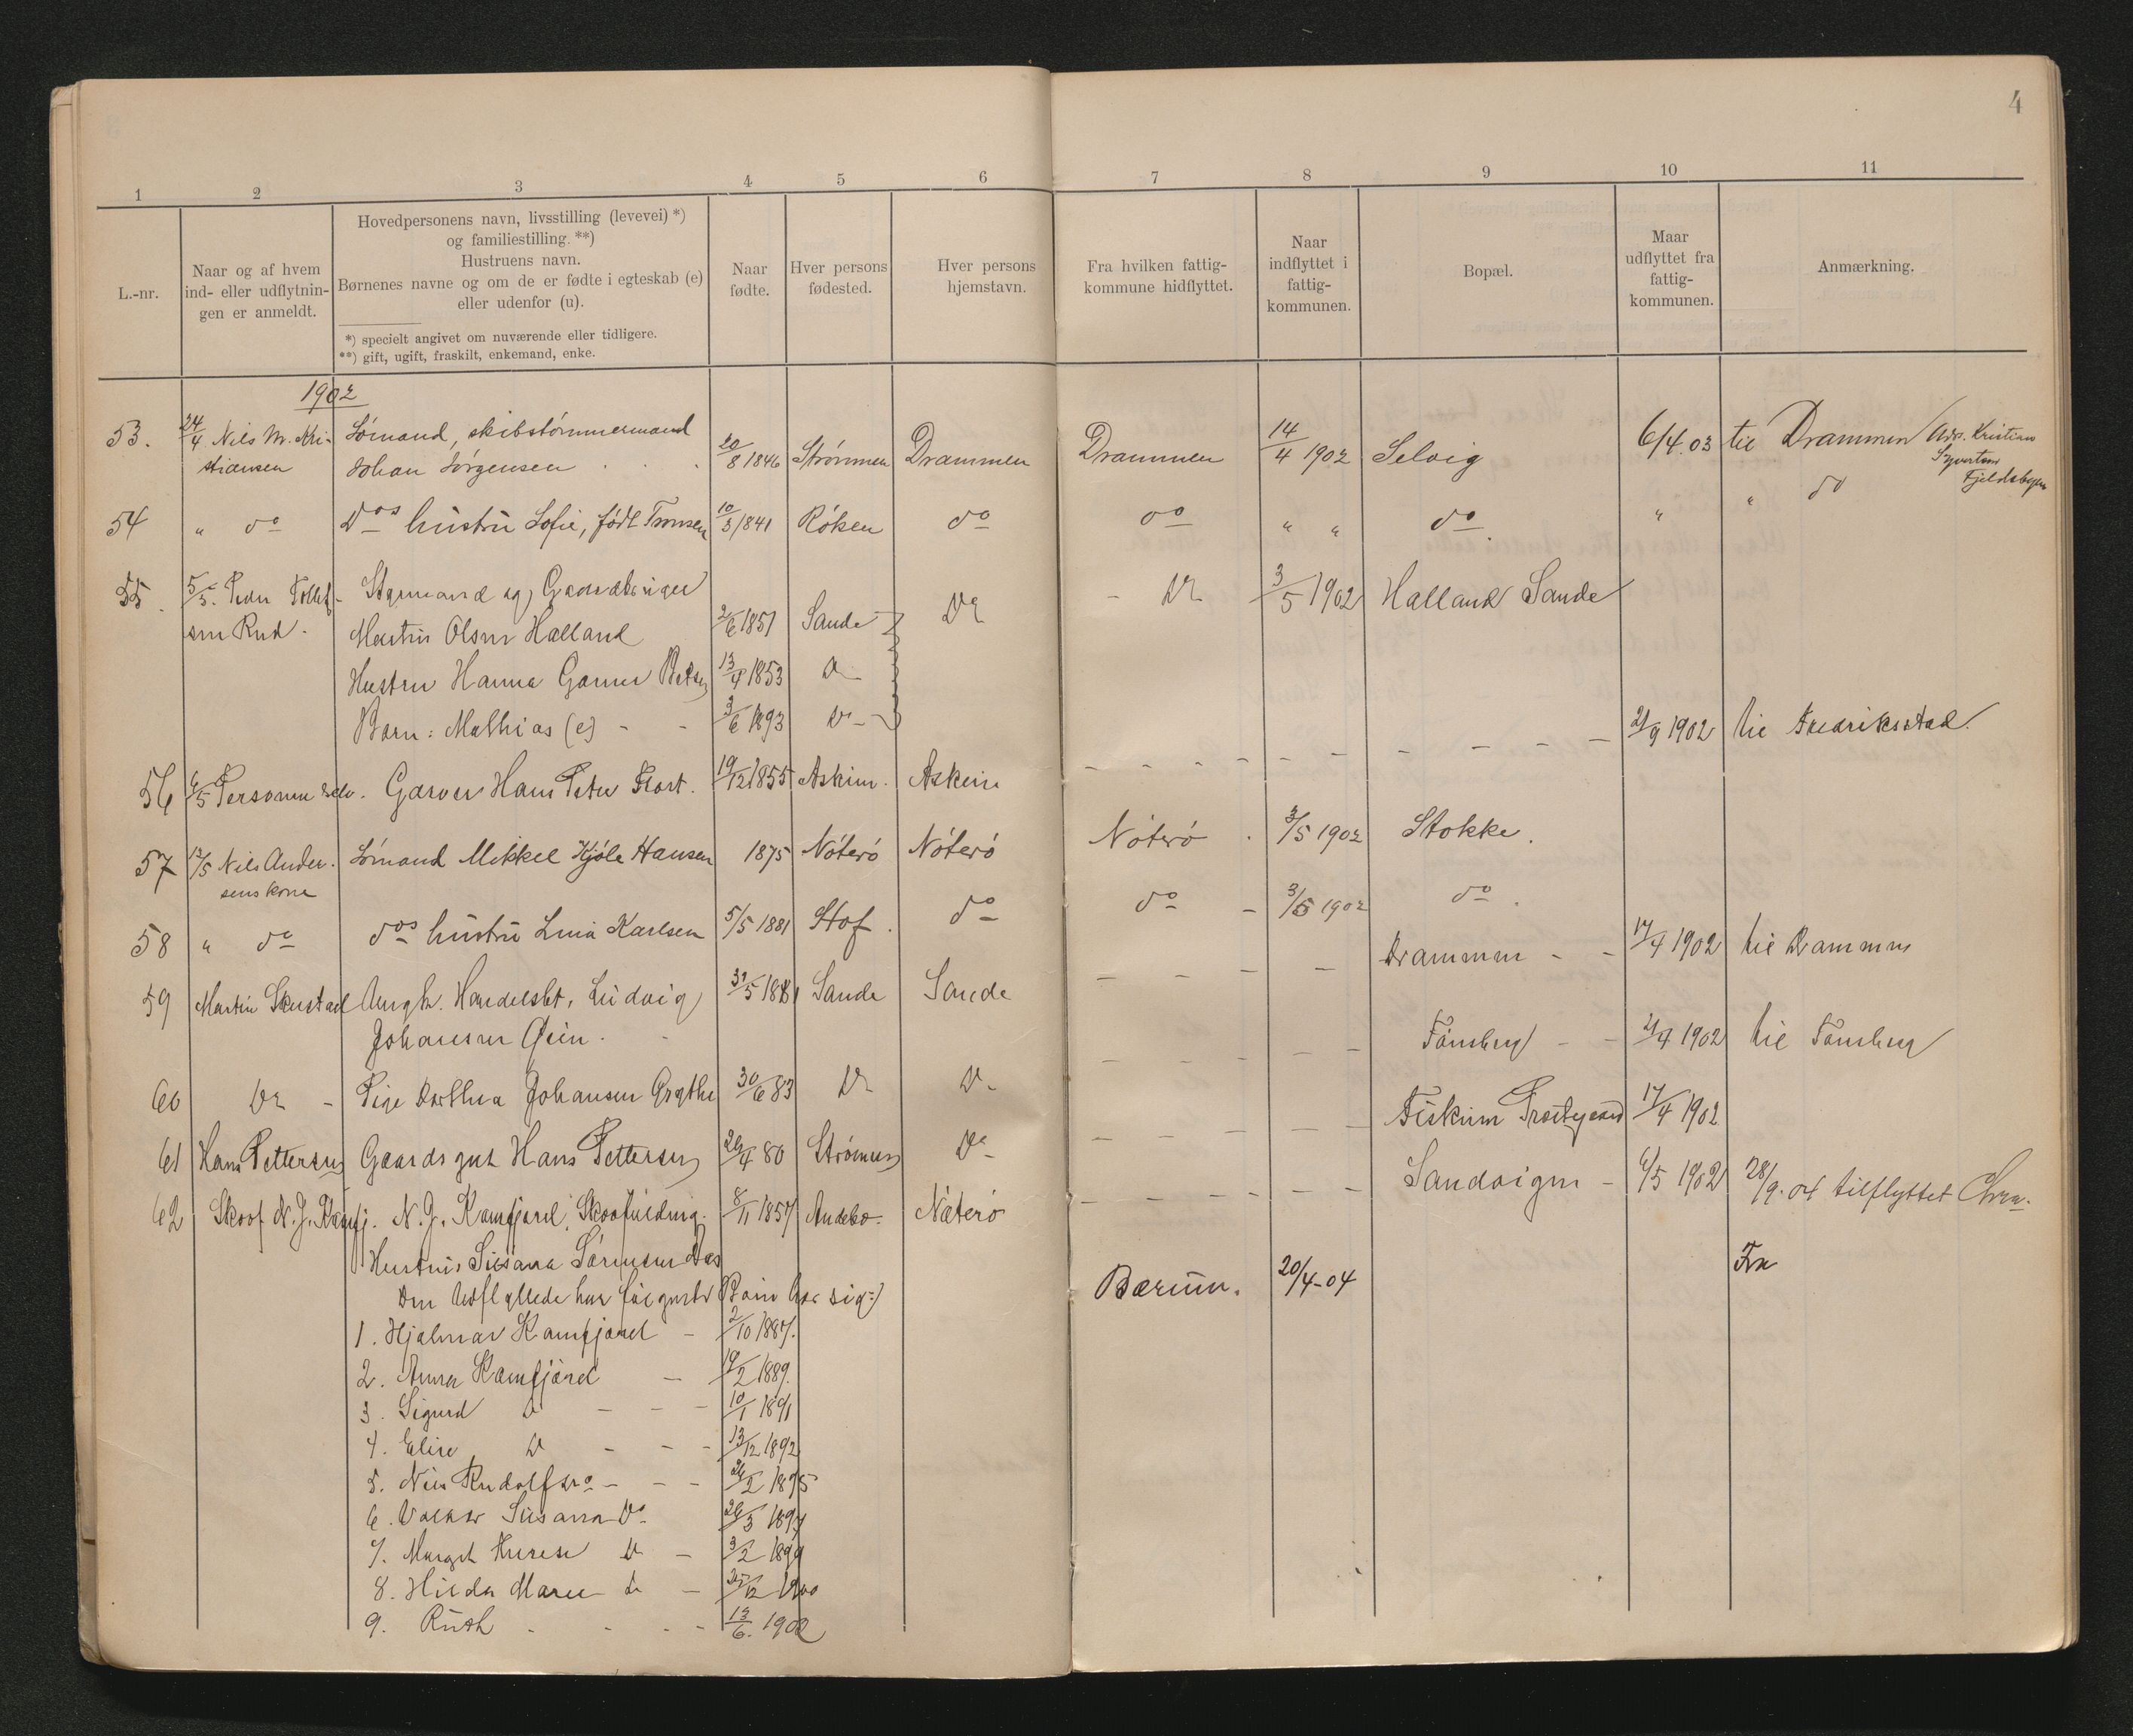 4
1 2 3 4 5 6 7 8 9 10 11
L.-nr.
Naar og af hvem
ind- eller udflytnin-
gen er anmeldt.
Hovedpersonens navn, livsstilling (levevei) *)
og familiestilling. **)
Hustruens navn.
Børnenes navne og om de er fødte i egteskab (e)
eller udenfor (u).
*) specielt angivet om nuværende eller tidligere.
**) gift, ugift, fraskilt, enkemand, enke.
Naar
fødte.
Hver persons
fødested.
Hver persons
hjemstavn.
Fra hvilken fattig-
kommune hidflyttet.
Naar
indflyttet i
fattig-
kommunen.
Bopæl.
Maar
udflyttet fra
fattig-
kommunen.
Anmærkning.
1902
53. 24/4 Nils M. Kri- Sömand, skibstömmermand
stiansen Johan Jörgensen 20/8 1846 Strömmen Drammen Drammen 14/4 1902 Selvig 6/4.03 til Drammen Kristian
Fjeldsbyen
54 " do Dos hustru Sofie, födt 10/3 1841 Röken do do " " do " " do
55. 5/5. Peder Tollef- Styrmand og Gaardbruger
sen Rud. Martin Olsen Halland 2/6 1851 Sande Do - Do 3/5 1902 Halland Sande
Hustru Hanna 13/4 1853 Do
Barn: Mathias (e) - - 3/6 1893 Do - 21/9 1902 til Fredriksstad.
56 6/5 Personen selv. Garver Hans Peter 19/12 1855 Askim. Askim
57 12/5 Nils Ander- Sömand Mikkel Kjöle Hansen 1875 Nöterö Nöterö Nöterö . 3/5 1902 Stokke.
sens kone
58 " do dos hustru Lina Karlsen 5/5 1881 Hof. do do - 3/5 1902 do.
59 Martin Skustad Ungk. Handelsbt. Ludvig 31/5 1881 Sande Sande Drammen - - 17/4 1902 til Drammen
Johansen
60 Do - Pige Dorthea Johansen 30/6 83 Do Do Tönsberg - - 2/4 1902 til Tönsberg
61 Hans Pettersen Gaardsgut Hans Pettersen 26/4 80 Strömmen Do Fiskum Prestegaard 17/4 1902
62 Skoof N. J. Kamfj. N. J. Kamfjord, Skoofuldmg. 8/11 1857 Andebo - Nøterö Sandvigen - 6/5 1902 28/9.04 tilflyttet Chra.
Hustru Susana Sörensen
Den Udflyttede har fölgende Barn hos sig:) Bærum. 20/4-04 Fra
1. Hjalmar Kamfjord - 2/10 1887.
2. Anna Kamfjord - 19/2 1889.
3. Sigurd Do - - - 10/1 1891
4. Elise Do - - - 13/12 1892
5. Nils Rudolf Do - - - 24/2 1895
6. Susanna Do. 26/3 1897
7. Margit Do - 3/2 1899
8. Hilda Marie Do - 25/12 1900
9. Ruth - - - 13/6. 1902